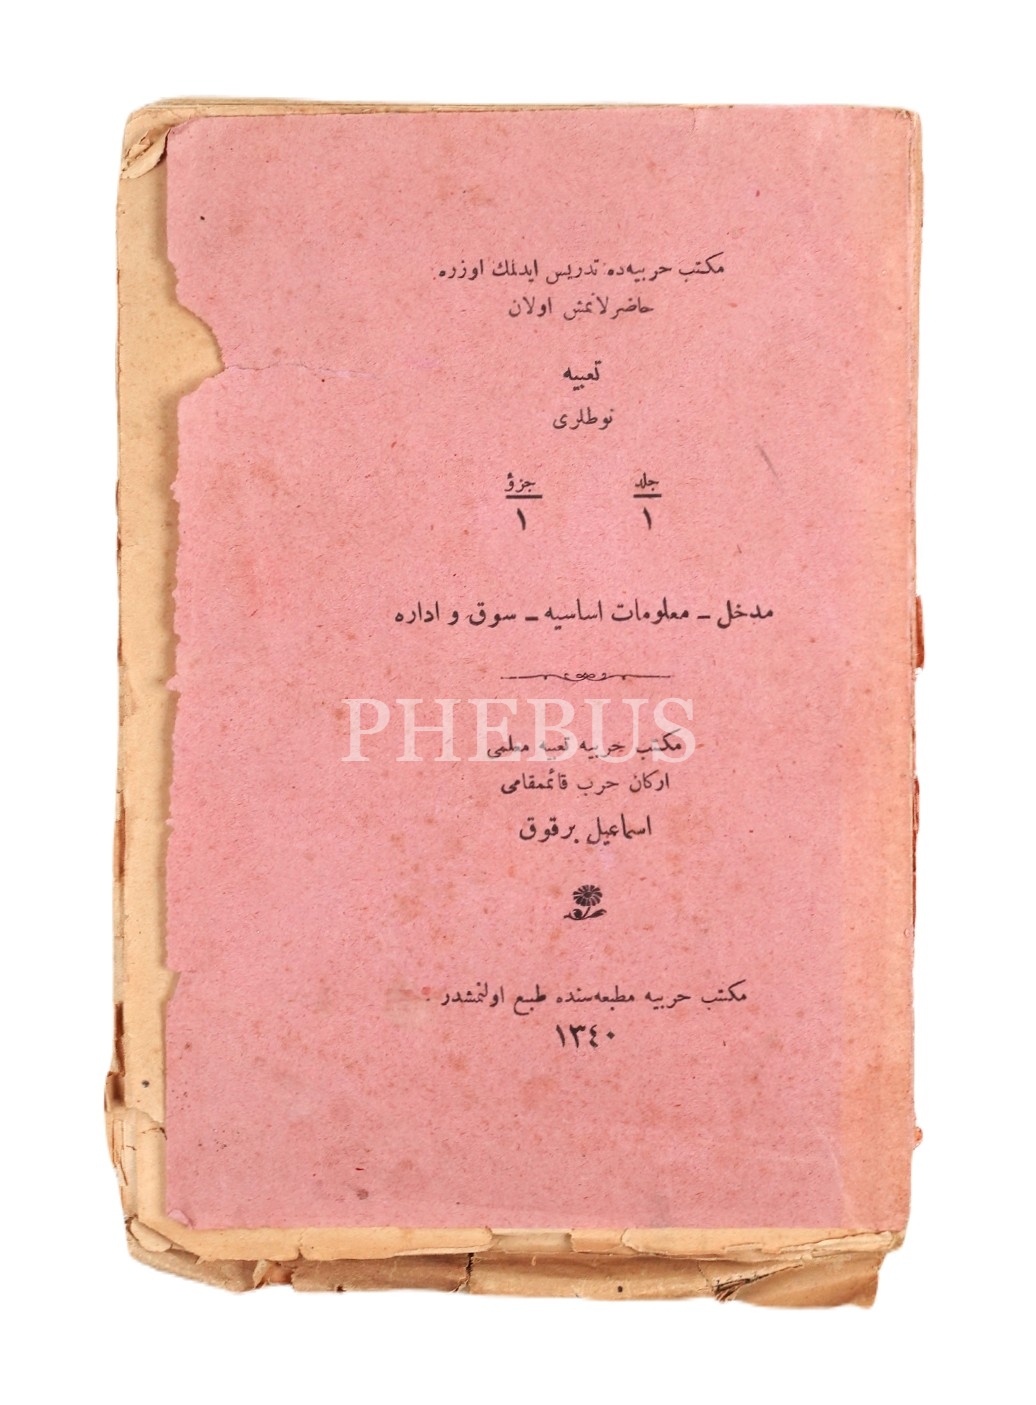 مكتب حربیه‌ده تدریس ایدلمك اوزره
حاضرلانمش اولان
تعبیه
نوطلری
جلد جزؤ
١ ١
مدخل ــ معلومات اساسیه ــ سوق و اداره
PHEBUS
مكتب حربیه تعبیه معلمی
اركان حرب قائممقامی
اسماعیل برقوق
مكتب حربیه مطبعه‌سنده طبع اولنمشدر .
١٣٤٠